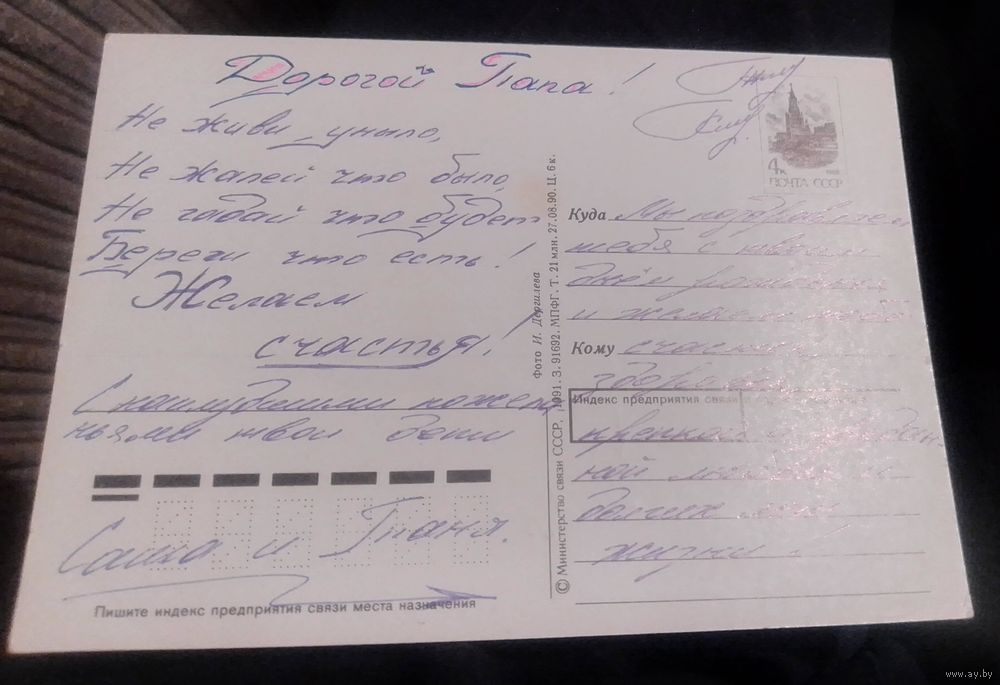 Дорогой Папа!
Не живи уныло,
Не жалей что было,
Не гадай что будет
Береги что есть!
Желаем
счастья!
С наилучшими пожела
ньями твои дети
Саша и Таня.
Пишите индекс предприятия связи места назначения
© Министерство связи СССР, 1991. З. 91692. МПФГ. Т. 21 млн. 27.08.90. Ц. 6 к.
Фото И. Дергилева
4к
1988
ПОЧТА СССР
Куда Мы поздравляем
тебя с твоим
днём рождения
и желаем тебе
Кому счастья
здоровья
Индекс предприятия связи и
крепкой и
ной
долгих лет
жизни.
www.ay.by